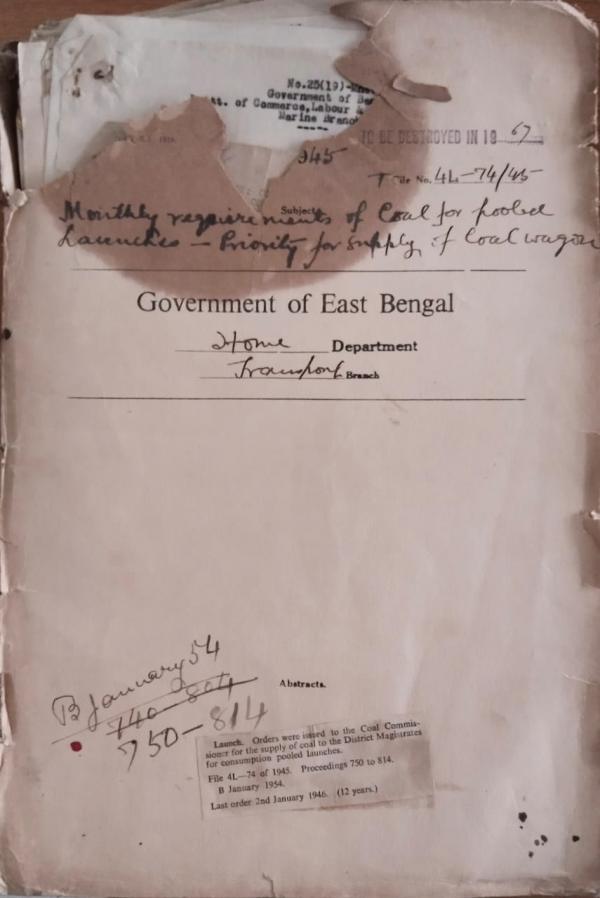 No.25(19)-
Government of Be
t. of Commerce, Labour &
Marine Branch
945
TO BE DESTROYED IN 19 67
File No. 4L-74/45
Subject
Monthly requirements of Coal for pooled
Launches - Priority for supply of Coal wagon
Government of East Bengal
Home Department
Transport Branch
B January 54
740-804
750-814
Abstracts.
Launch. Orders were issued to the Coal Commis-
sioner for the supply of coal to the District Magistrates
for consumption pooled launches.
File 4L-74 of 1945. Proceedings 750 to 814.
B January 1954.
Last order 2nd January 1946. (12 years.)